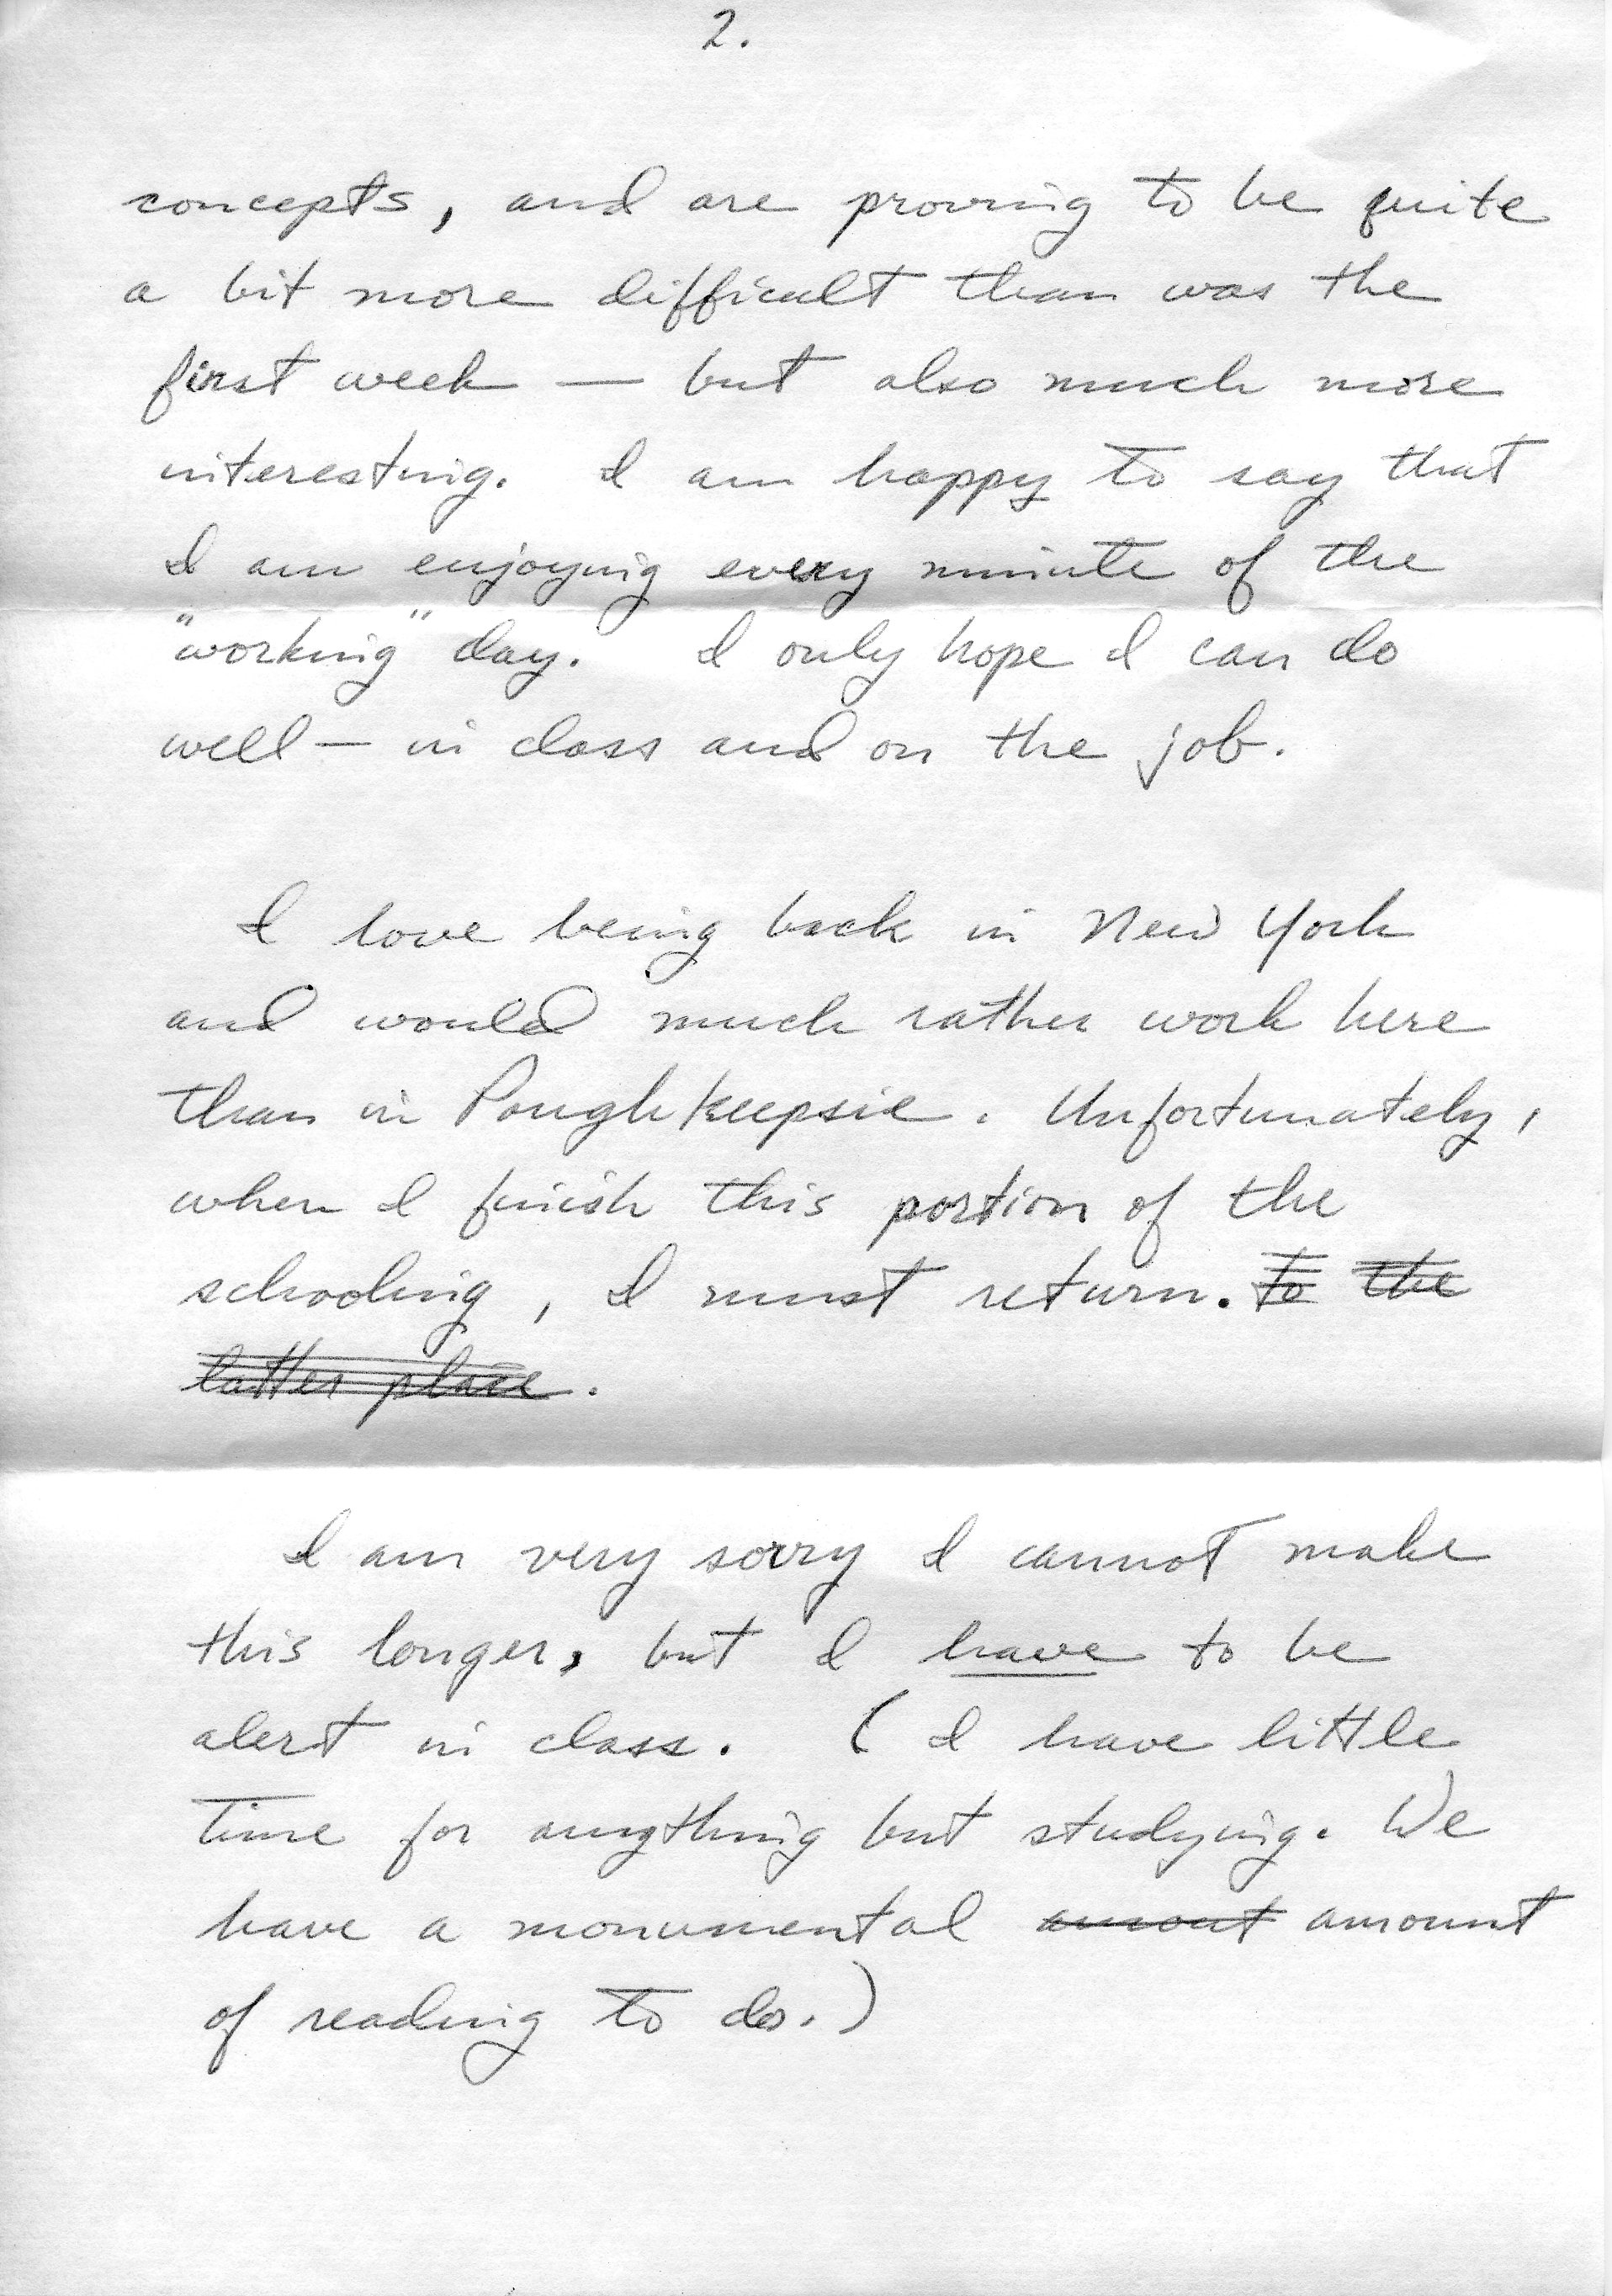 2.
concepts, and are proving to be quite
a bit more difficult than was the
first week — but also much more
interesting. I am happy to say that
I am enjoying every minute of the
"working" day. I only hope I can do
well — in class and on the job.
I love being back in New York
and would much rather work here
than in Poughkeepsie. Unfortunately,
when I finish this portion of the
schooling, I must return. to the
latter place.
I am very sorry I cannot make
this longer, but I have to be
alert in class. (I have little
time for anything but studying. We
have a monumental amout amount
of reading to do.)